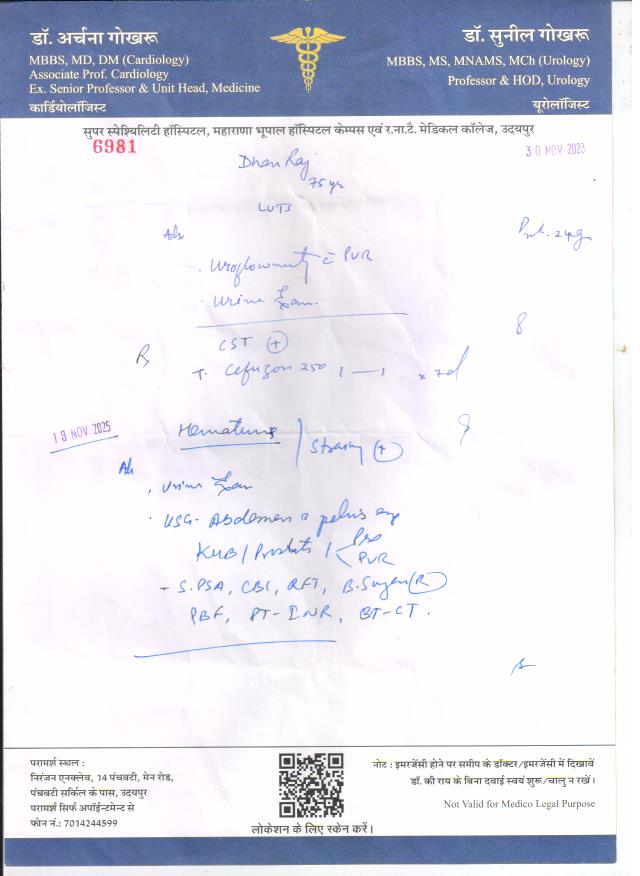 डॉ. अर्चना गोखरू
MBBS, MD, DM (Cardiology)
Associate Prof. Cardiology
Ex. Senior Professor & Unit Head, Medicine
कार्डियोलॉजिस्ट
डॉ. सुनील गोखरू
MBBS, MS, MNAMS, MCh (Urology)
Professor & HOD, Urology
यूरोलॉजिस्ट
सुपर स्पेश्यिलिटी हॉस्पिटल, महाराणा भूपाल हॉस्पिटल केम्पस एवं र.ना.टै. मेडिकल कॉलेज, उदयपुर
6981
30 NOV 2023
Dhan Raj
75 yr
LUTS
Adv
Uroflowmetry c̄ PVR
Urine Exam.
CST (+)
R
T. Cefuzon 250 1 — 1 x 7d
18 NOV 2025
Hematuria / Straining (+)
Adv
Urine Exam
USG- Abdomen & pelvis
KUB / Prostate / Pre
PVR
- S.PSA, CBC, RFT, B.Sugar (R)
PBF, PT-INR, BT-CT.
परामर्श स्थल :
निरंजन एनक्लेव, 14 पंचवटी, मेन रोड,
पंचवटी सर्किल के पास, उदयपुर
परामर्श सिर्फ अपॉईन्टमेन्ट से
फोन नं.: 7014244599
लोकेशन के लिए स्केन करें।
नोट : इमरजेंसी होने पर समीप के डॉक्टर/इमरजेंसी में दिखावें
डॉ. की राय के बिना दवाई स्वयं शुरू/चालु न रखें।
Not Valid for Medico Legal Purpose